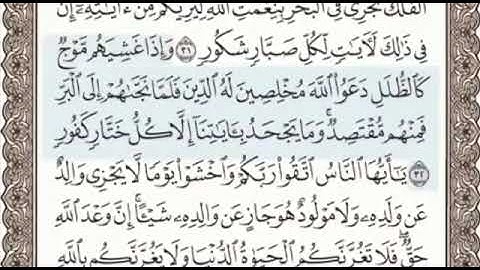 الفلك تجري في البحر بنعمت الله ليريكم من ءايته إن
فِى ذَٰلِكَ لَـَٔايَـٰتٍ لِّكُلِّ صَبَّارٍ شَكُورٍ ٣١ وَإِذَا غَشِيَهُم مَّوْجٌ
كَٱلظُّلَلِ دَعَوُا۟ ٱللَّهَ مُخْلِصِينَ لَهُ ٱلدِّينَ فَلَمَّا نَجَّىٰهُمْ إِلَى ٱلْبَرِّ
فَمِنْهُم مُّقْتَصِدٌ ۚ وَمَا يَجْحَدُ بِـَٔايَـٰتِنَآ إِلَّا كُلُّ خَتَّارٍ كَفُورٍ
٣٢ يَـٰٓأَيُّهَا ٱلنَّاسُ ٱتَّقُوا۟ رَبَّكُمْ وَٱخْشَوْا۟ يَوْمًا لَّا يَجْزِى وَالِدٌ
عَن وَلَدِهِۦ وَلَا مَوْلُودٌ هُوَ جَازٍ عَن وَالِدِهِۦ شَيْـًٔا ۚ إِنَّ وَعْدَ ٱللَّهِ
حَقٌّ ۖ فَلَا تَغُرَّنَّكُمُ ٱلْحَيَوٰةُ ٱلدُّنْيَا وَلَا يَغُرَّنَّكُم بِٱللَّهِ